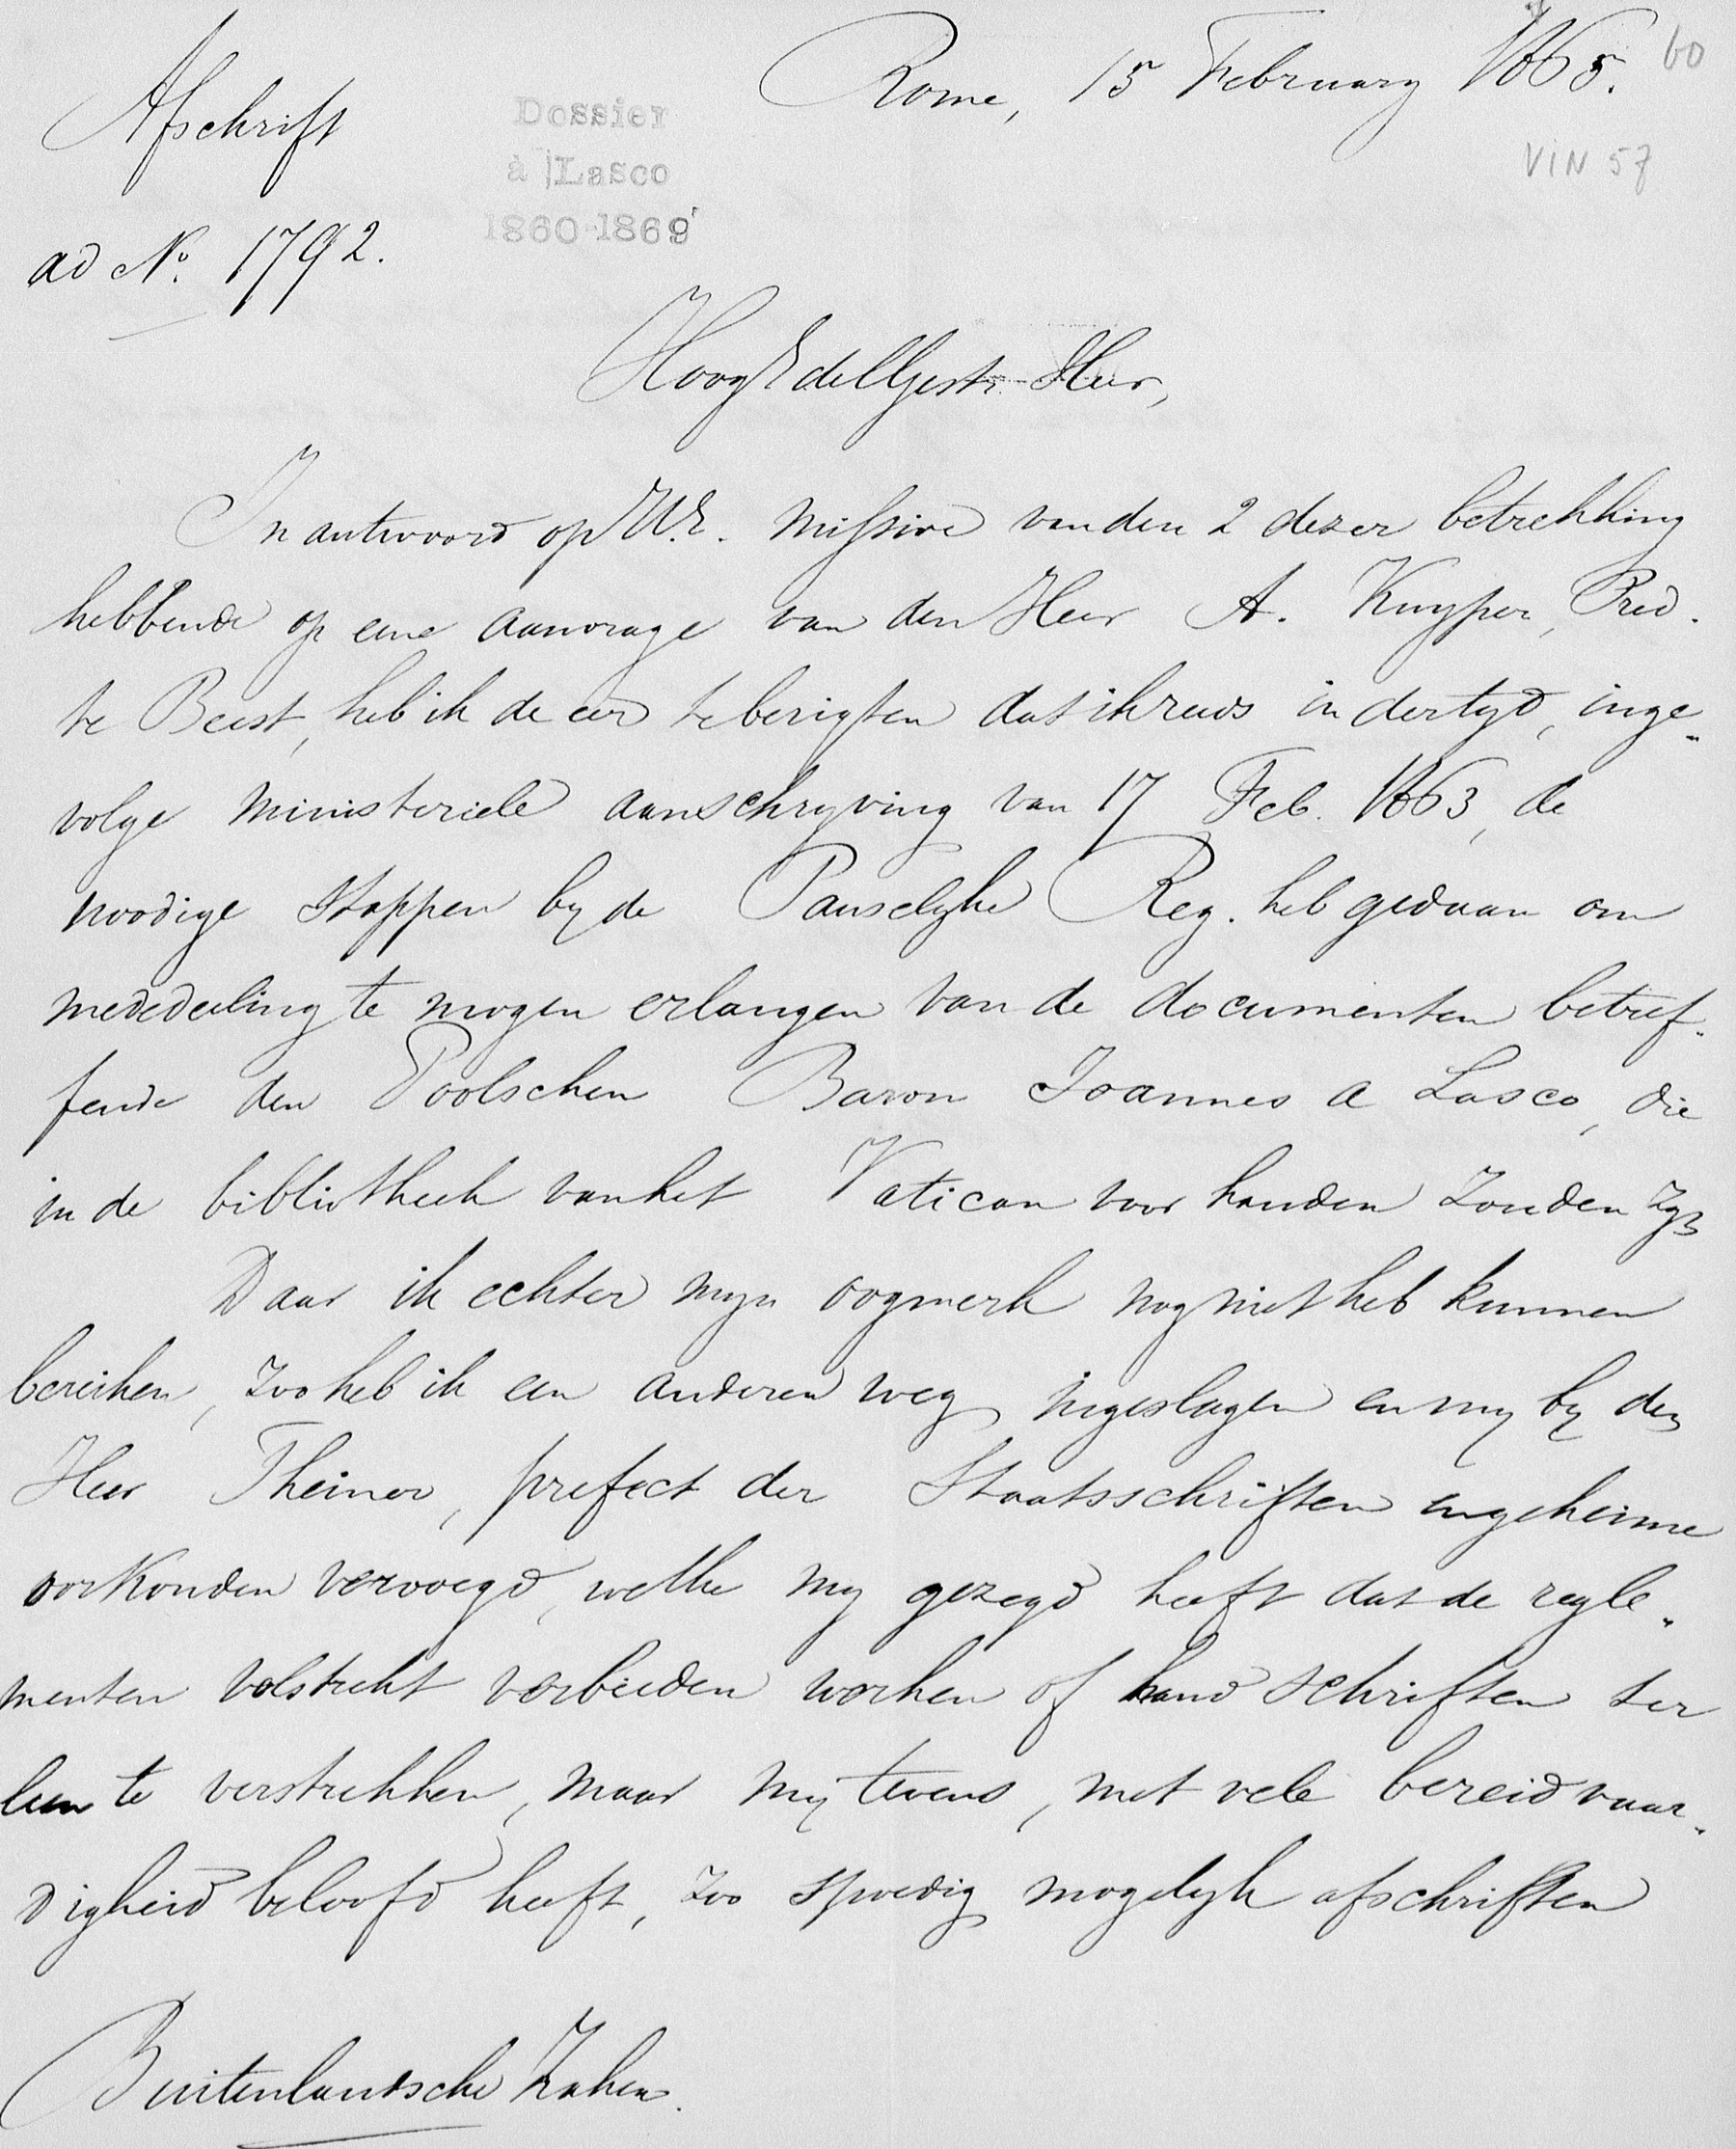 Rome, 15 February 1865. 60
Afschrift
Dossier
à Lasco
1860-1869
VIN 57
ad No. 1792.
HoogEdelGestr. Heer,
In antwoord op U.E. missive van den 2 dezer betrekking
hebbende op eene aanvrage van den Heer A. Kuyper, Pred.
te Beest, heb ik de eer te berigten dat ik reeds in dertyd, inge„
volge ministeriele aanschryving van 17 Feb. 1863, de
noodige stappen by de Pauselyke Reg. heb gedaan om
mededeeling te mogen erlangen van de documenten betref„
fende den Poolschen Baron Joannes a Lasco, die
in de bibliotheek van het Vatican voor handen zouden zyn
Daar ik echter myn oogmerk nog niet heb kunnen
bereiken, zoo heb ik een anderen weg ingeslagen en my by den
Heer Theiner, prefect der Staatsschriften en geheime
oorkonden vervoegd, welke my gezegd heeft dat de regle„
menten volstrekt verbieden werken of handschriften ter
leen te verstrekken, maar my tevens, met vele bereidvaar„
digheid beloofd heeft, zoo spoedig mogelyk afschriften
Buitenlandsche Zaken.